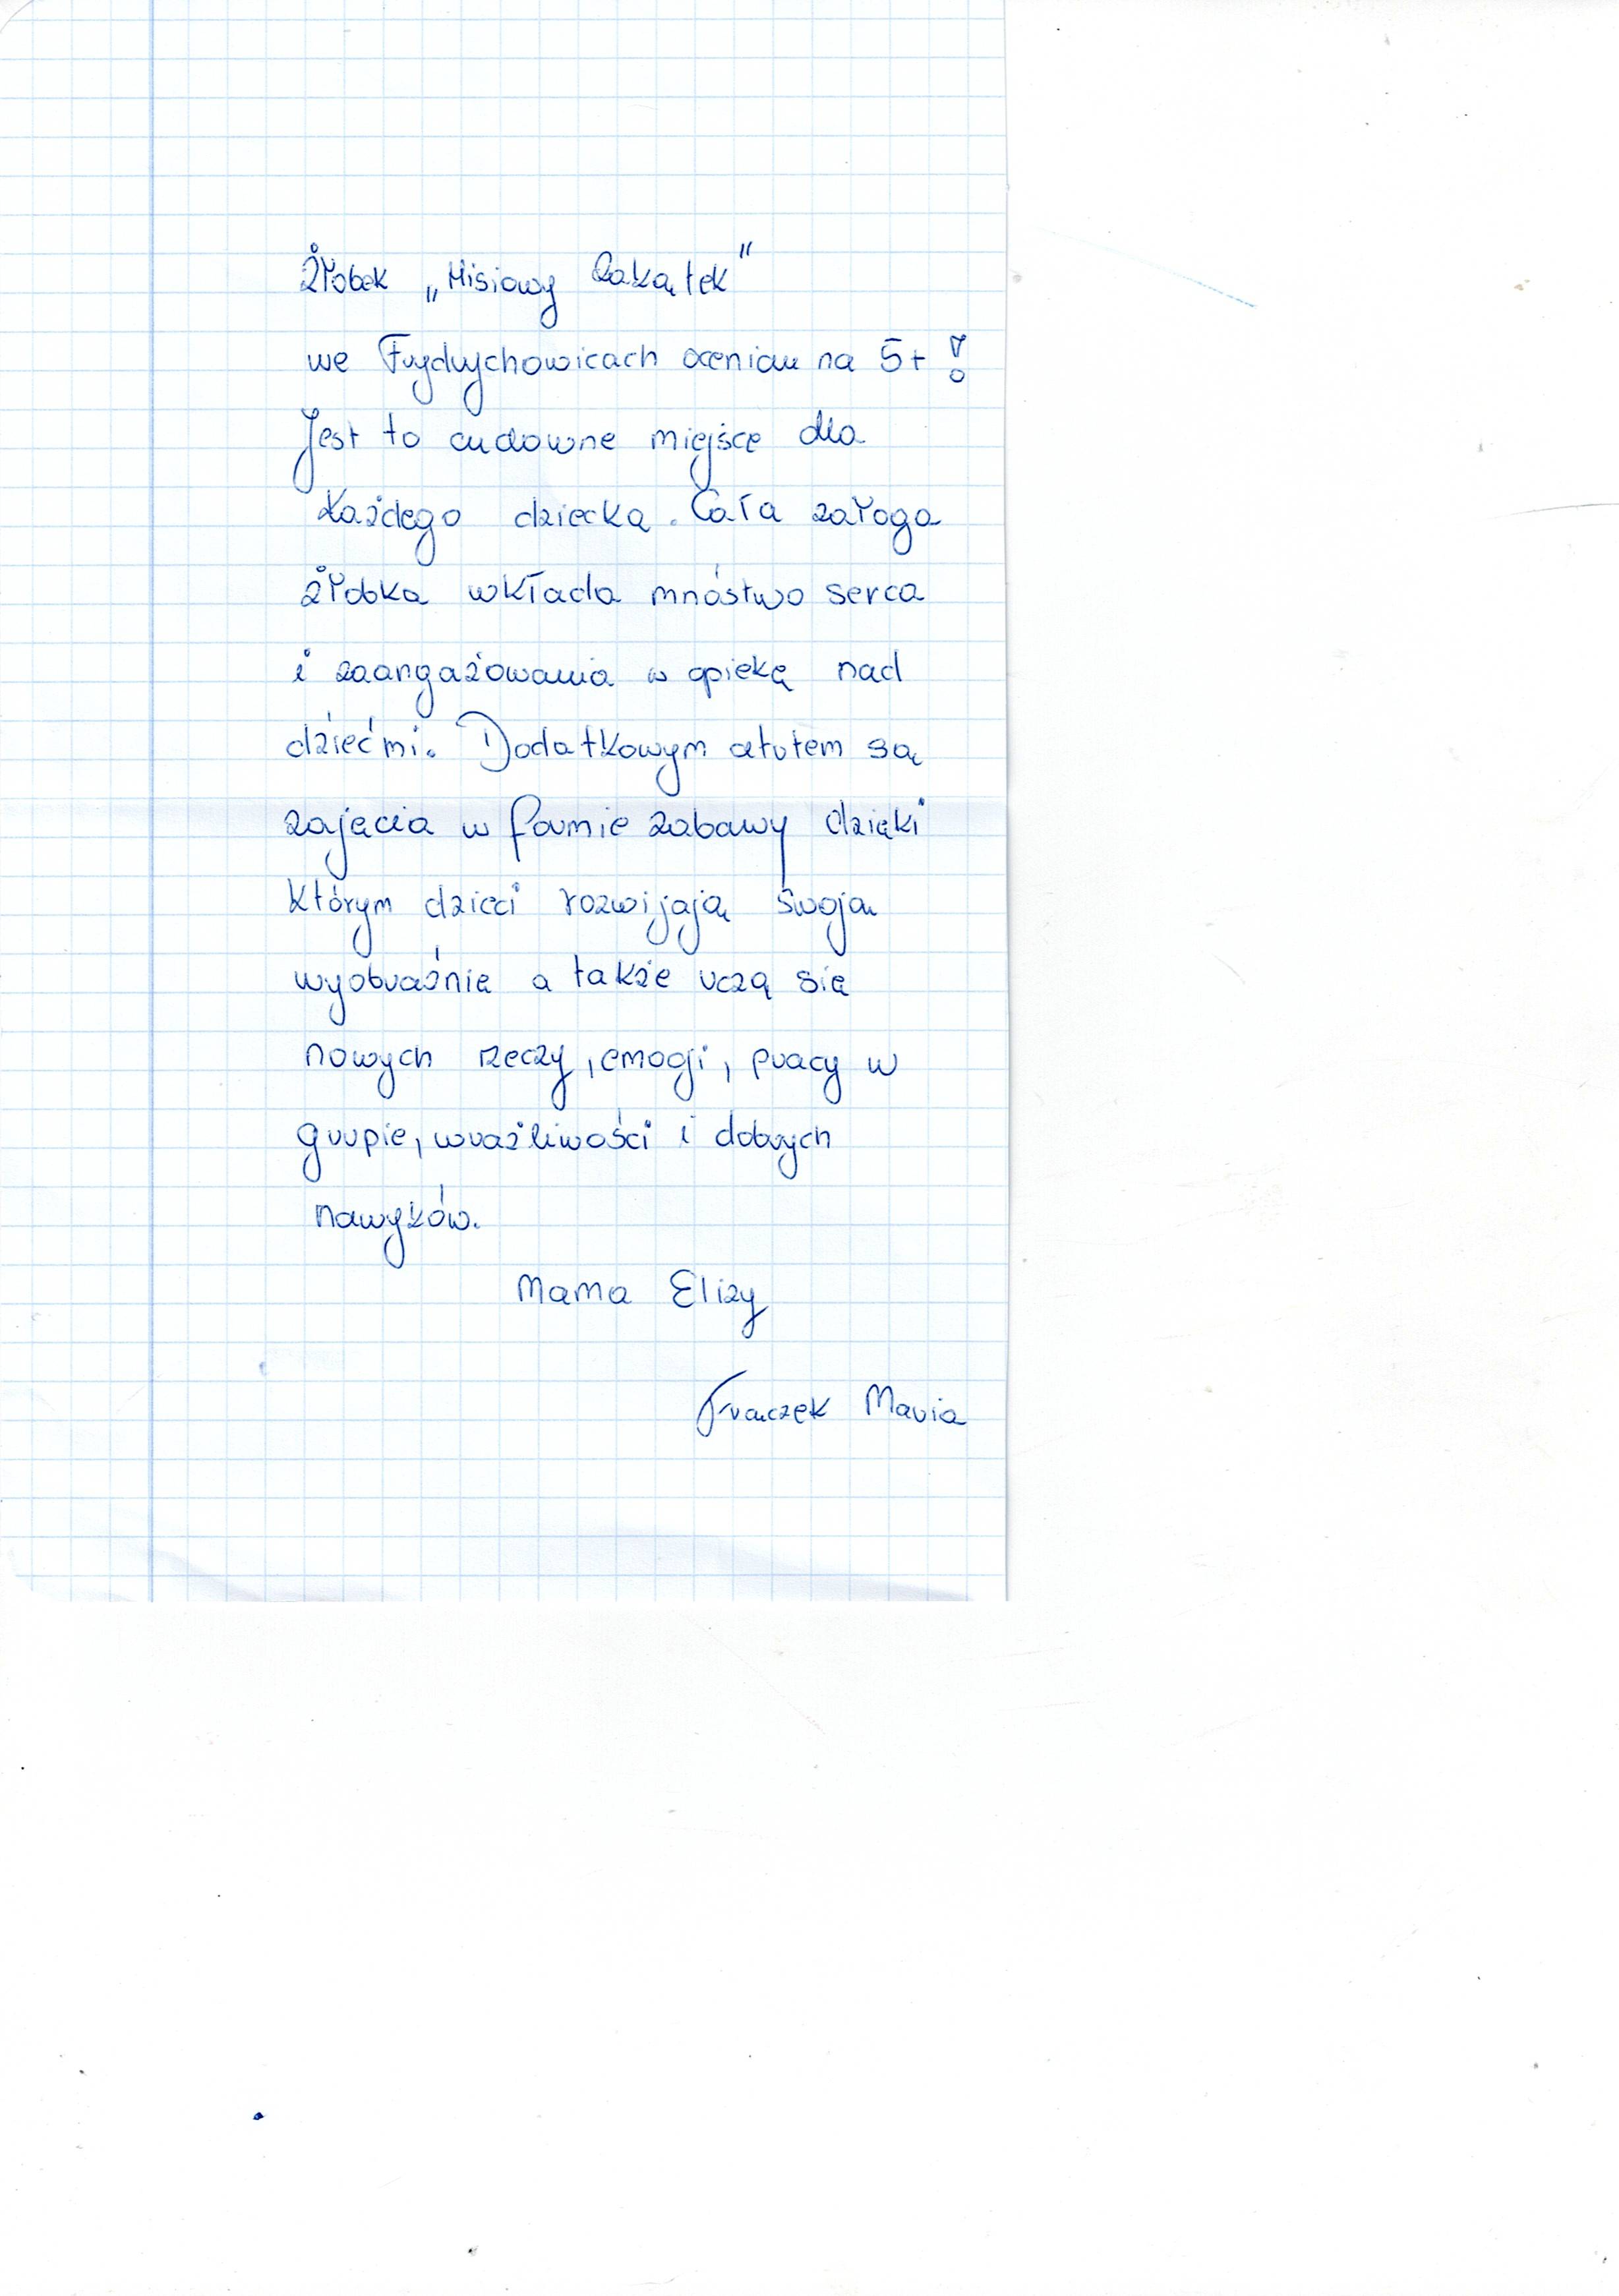 Żłobek „Misiowy Zakątek"
we Frydrychowicach oceniam na 5+!
Jest to cudowne miejsce dla
każdego dziecka. Cała załoga
żłobka wkłada mnóstwo serca
i zaangażowania w opiekę nad
dziećmi. Dodatkowym atutem są
zajęcia w formie zabawy dzięki
którym dzieci rozwijają swoją
wyobraźnię a także uczą się
nowych rzeczy, emocji, pracy w
grupie, wrażliwości i dobrych
nawyków.
Mama Elizy
Fraczek Maria